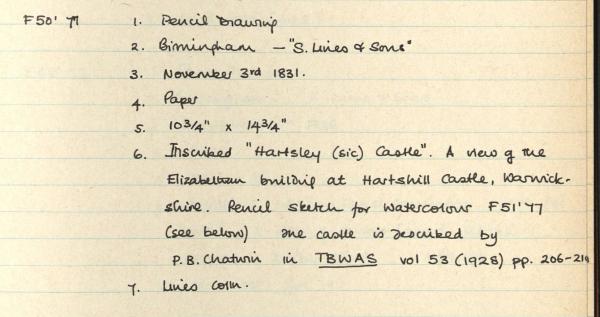 F50'77 1. Pencil Drawing
2. Birmingham – "S. Lines & Sons"
3. November 3rd 1831.
4. Paper
5. 10 3/4" x 14 3/4"
6. Inscribed "Hartsley (sic) Castle". A view of the
Elizabethan building at Hartshill Castle, Warwick-
shire. Pencil sketch for watercolour F51'77
(see below) The castle is described by
P.B. Chatwin in TBWAS vol 53 (1928) pp. 206-219
7. Lines Colln.